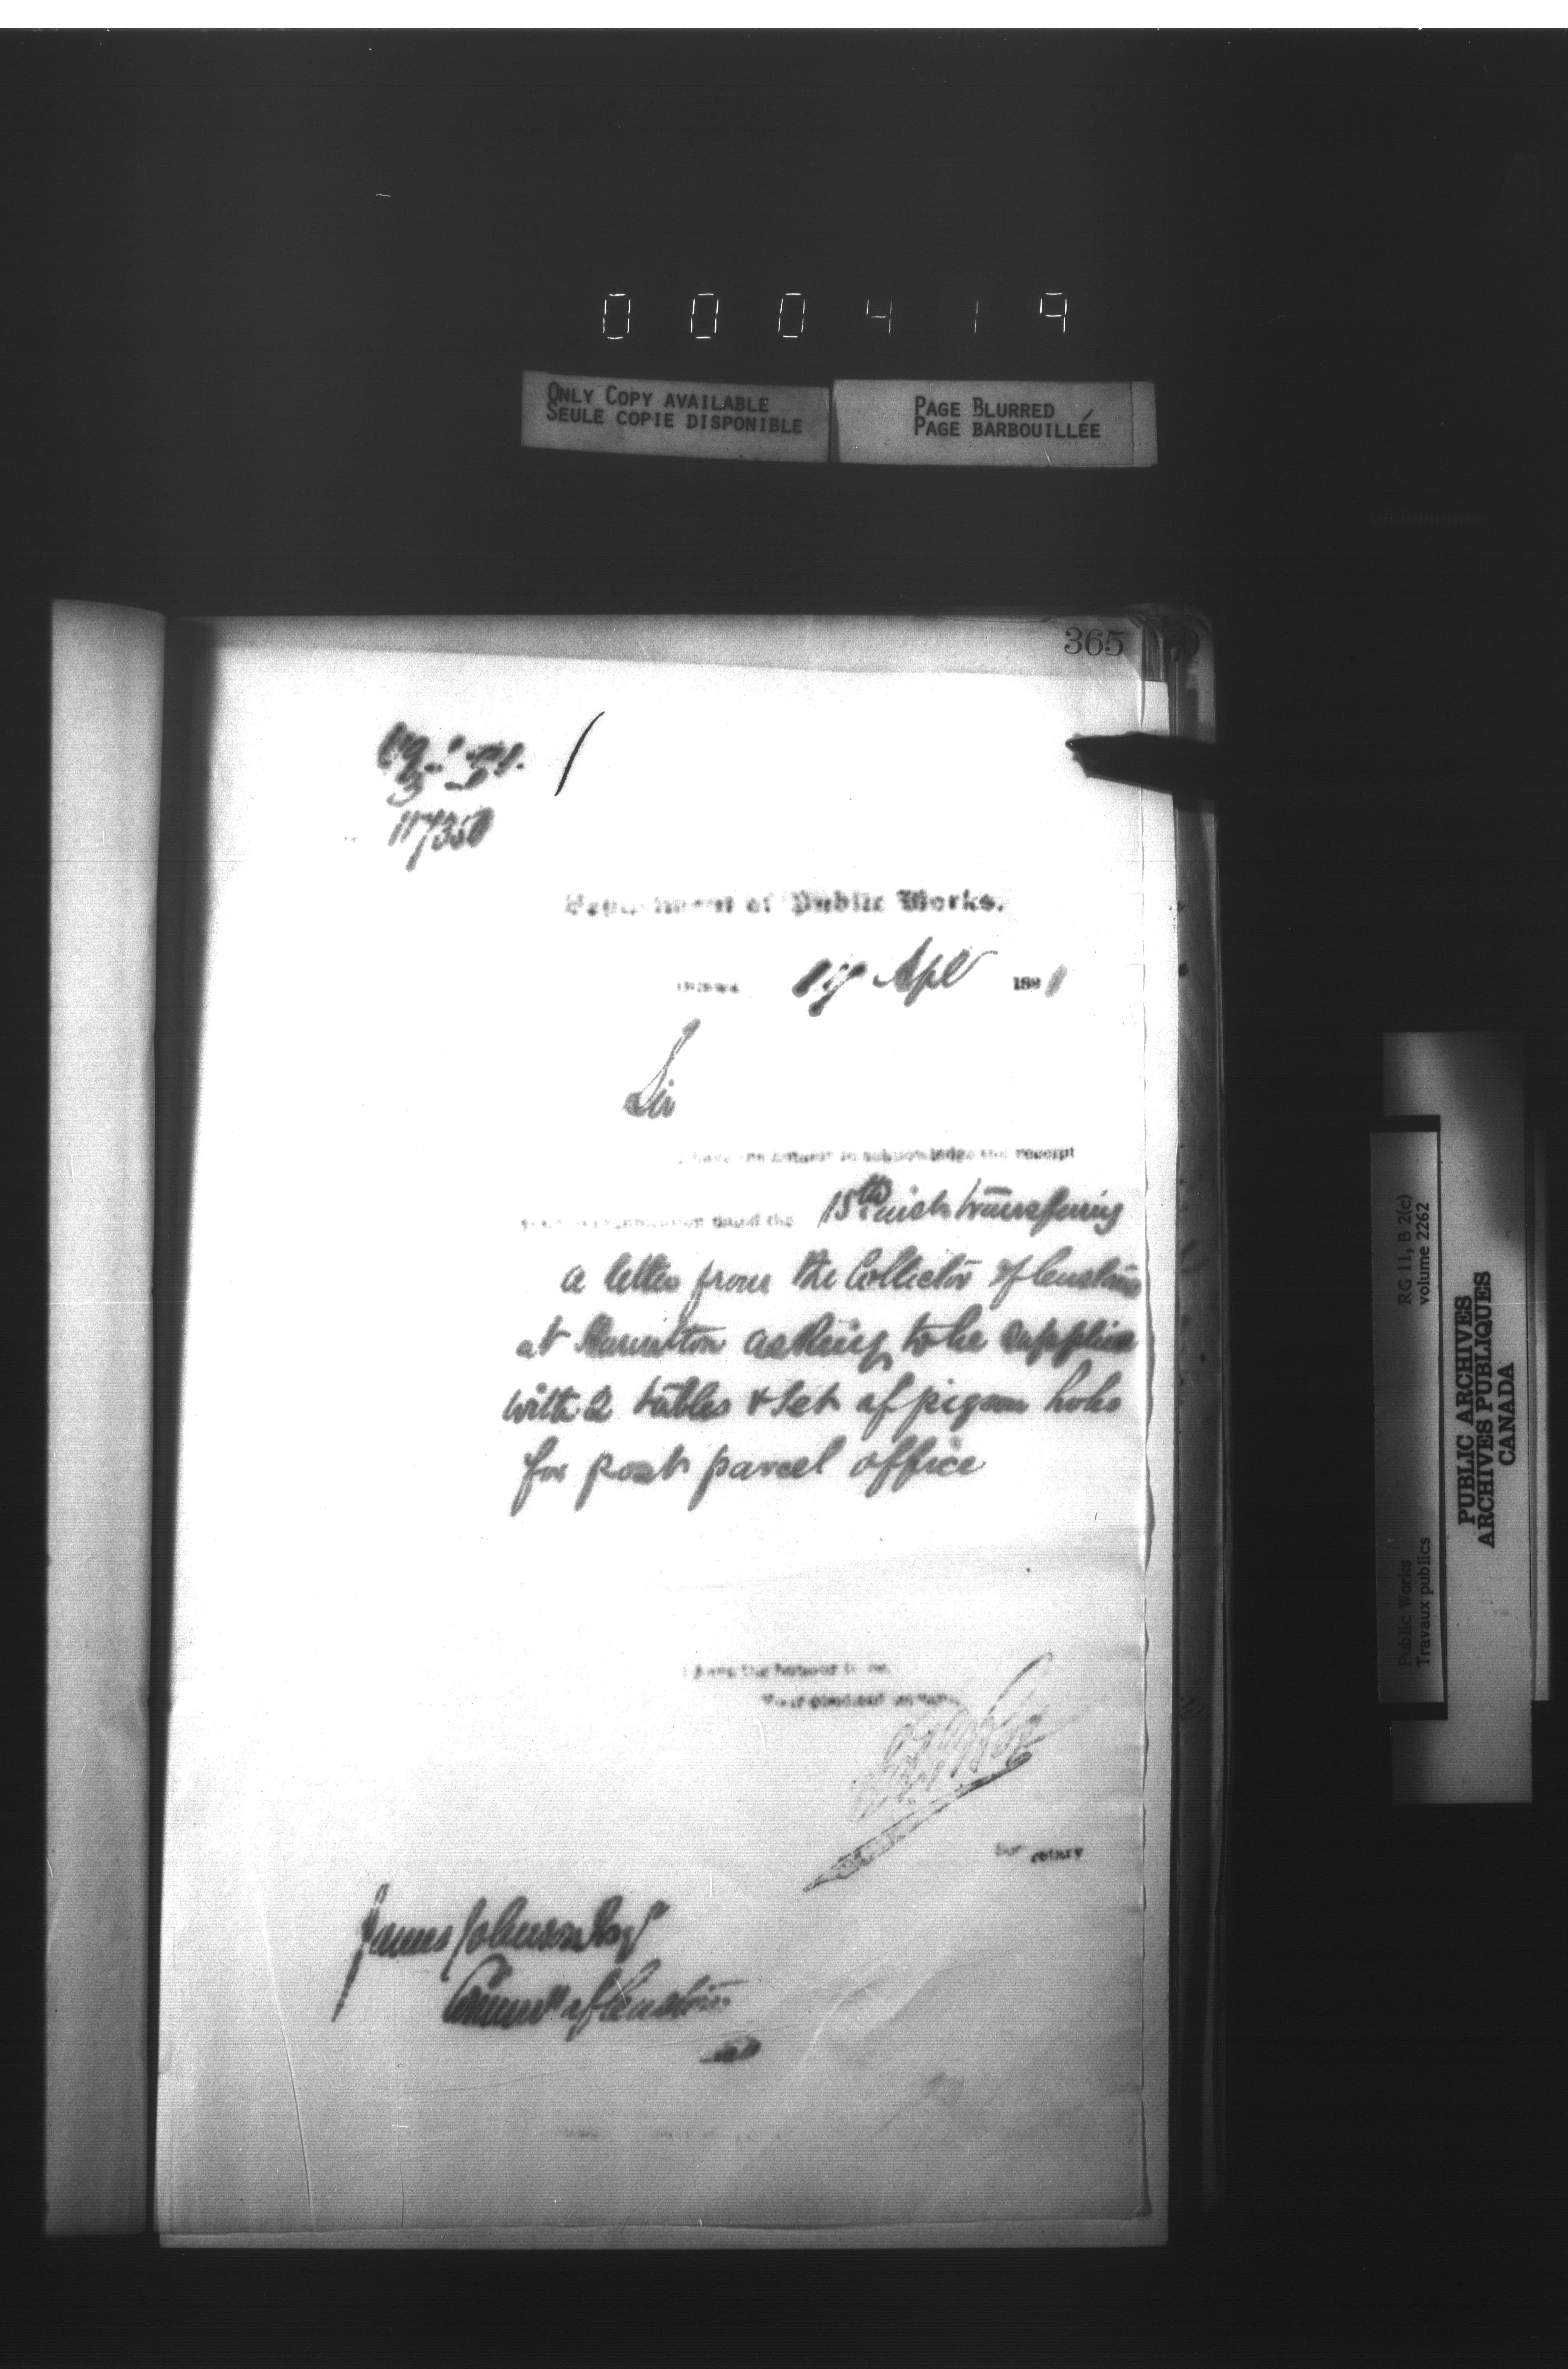 000419
ONLY COPY AVAILABLE
SEULE COPIE DISPONIBLE
PAGE BLURRED
PAGE BARBOUILLÉE
365
117350
Department of Public Works.
Ottawa 17 Apl 1891
Sir
I have the honour to acknowledge the receipt
dated the 15th inst transferring
a letter from the Collector of Customs
at Hamilton asking to be supplied
with 2 tables & set of pigeon holes
for post parcel office
I have the honour to be,
Your obedient servant
Secretary
James Johnson Esqr
Commr of Customs
RG 11, B 2(c)
volume 2262
Public Works
Travaux publics
PUBLIC ARCHIVES
ARCHIVES PUBLIQUES
CANADA